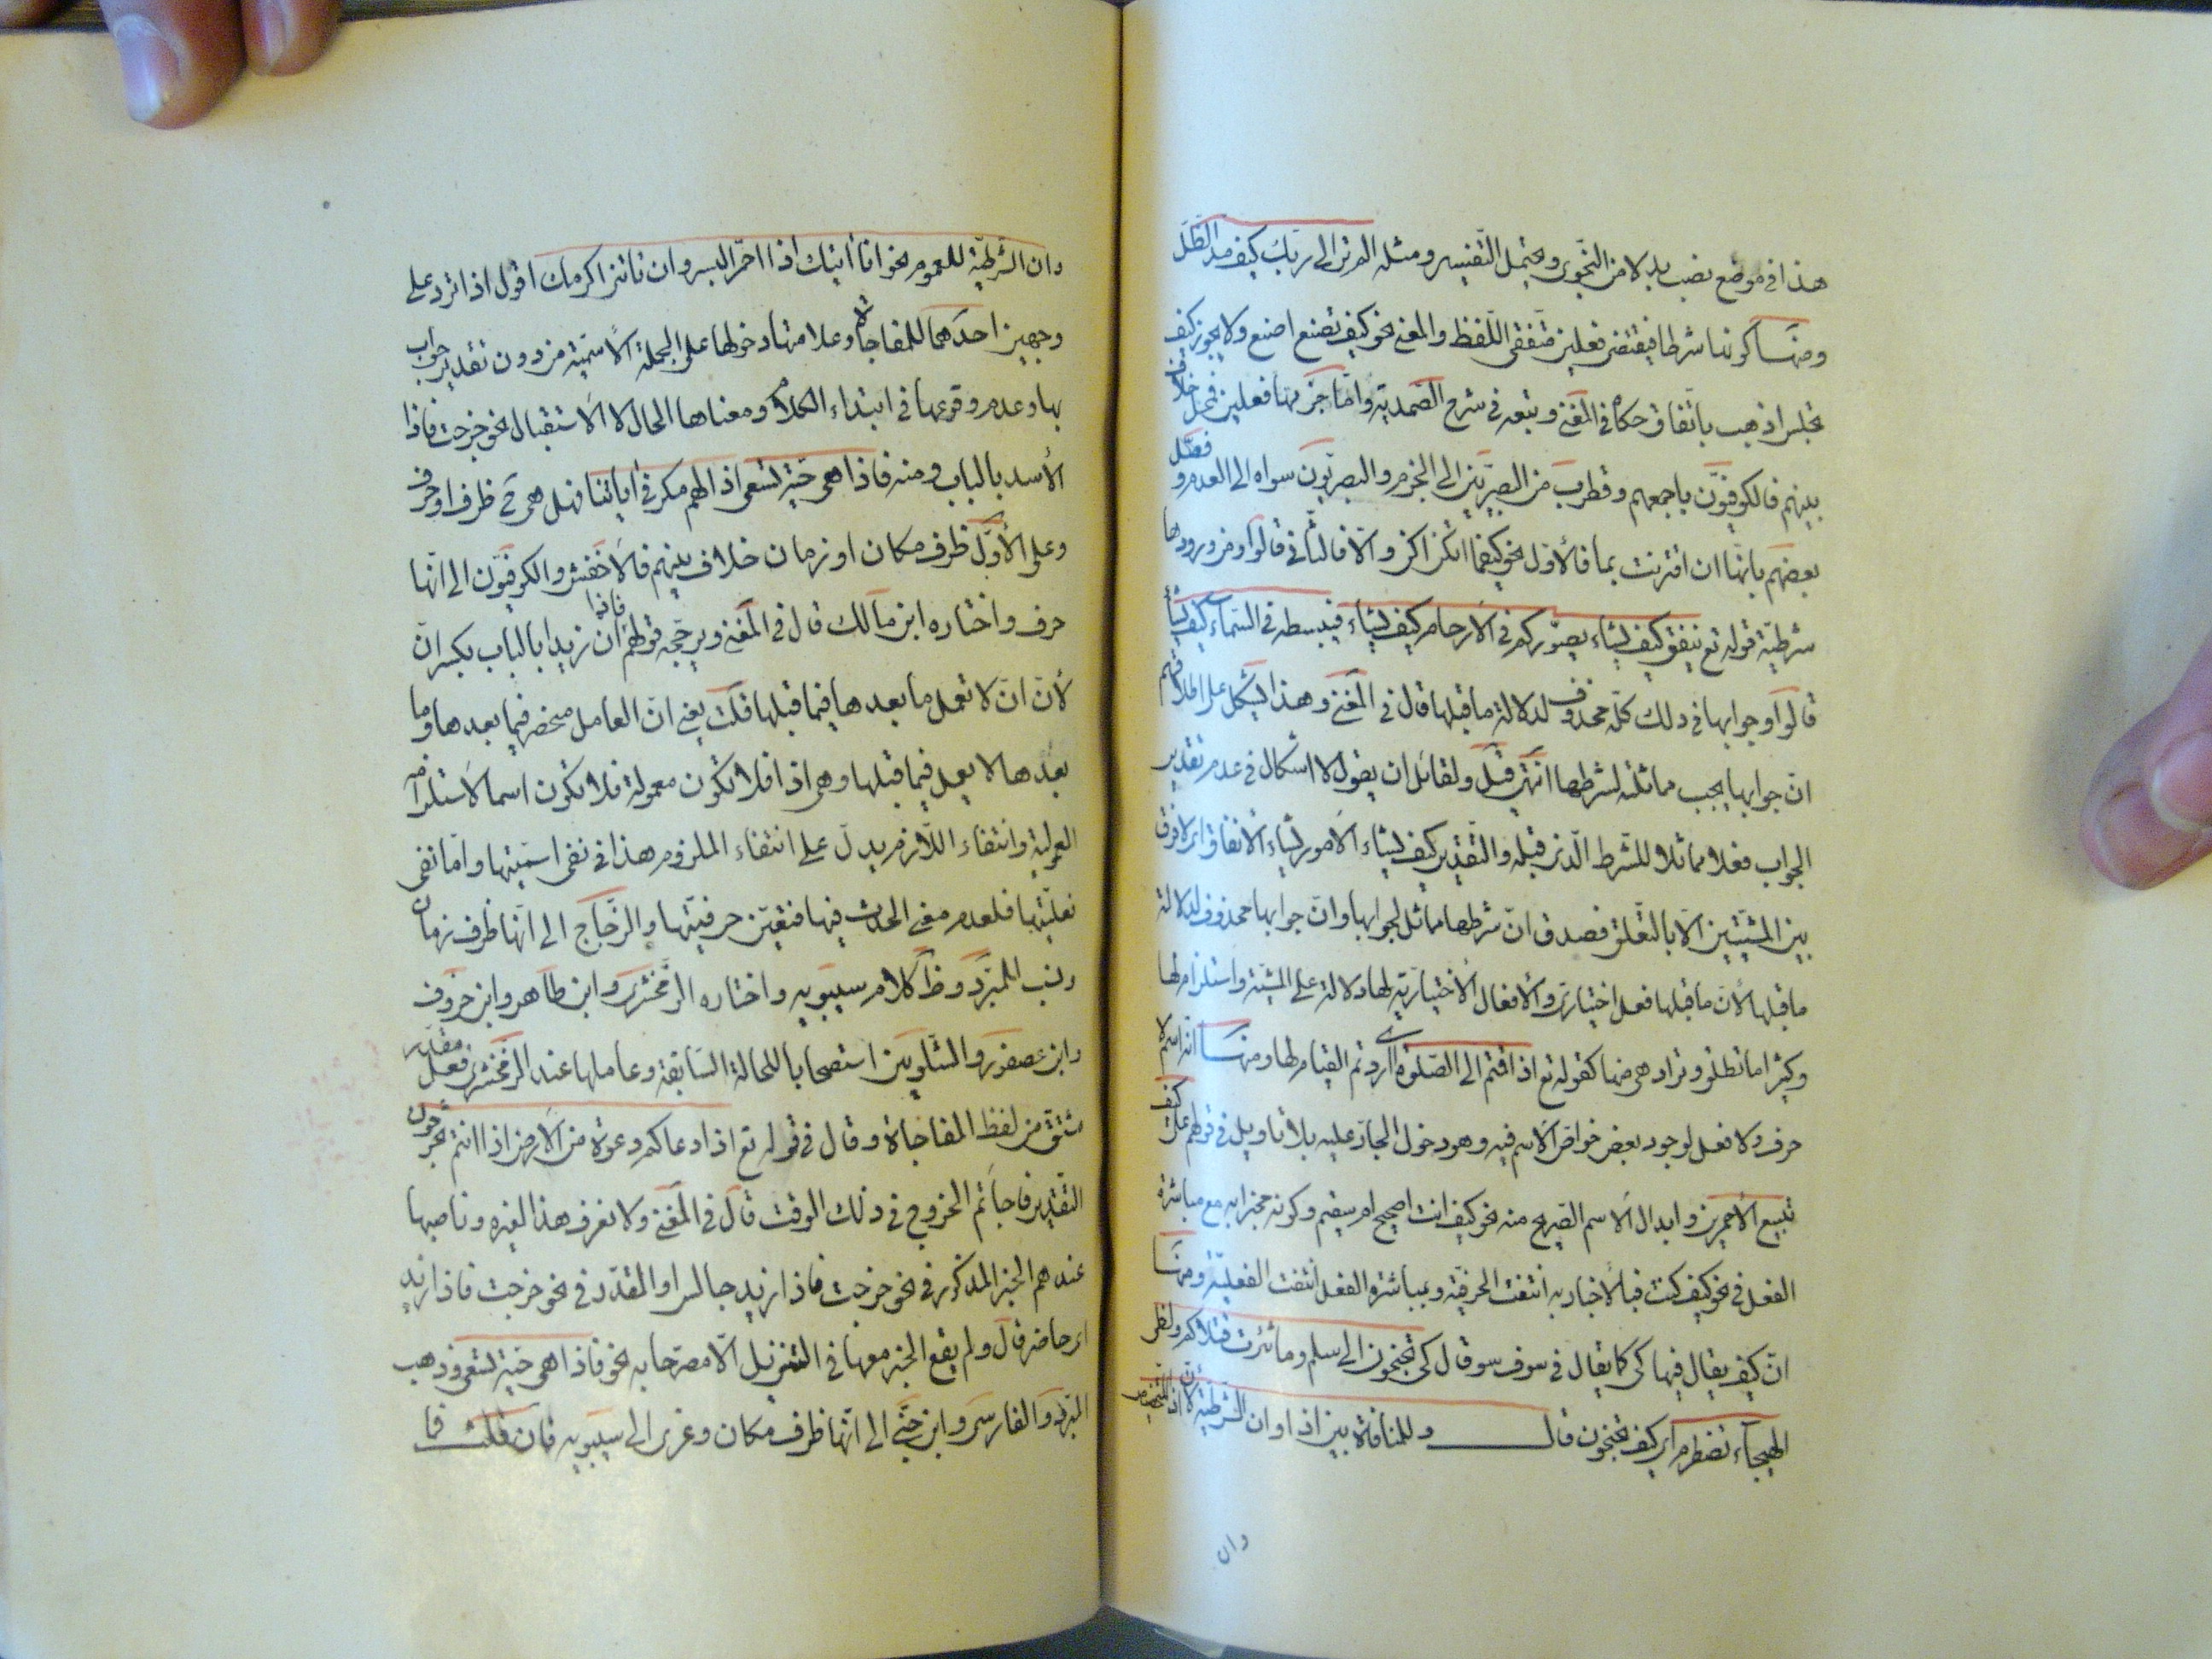 هذا في موضع نصب بدلا من النجوى ويحتمل التفسير ومثله الم تر الى ربك كيف مد الظل
ومنها كونها شرطا فيقتضى فعلين متفقى اللفظ والمعنى نحو كيف تصنع اصنع ولا يجوز كيف
تجلس اذهب باتفاق حكاه في المغنى وتبعه في شرح الصمدية وامّا جزمها فعلين فمحل خلاف
بينهم فالكوفيّون باجمعهم وقطرب من البصريّين الى الجزم والبصريّون سواه الى العدم وفصّل
بعضهم بانّها ان اقترنت بما فالأوّل نحو كيفما تكن اكن والّا فالثّاني قالوا ومن ورودها
شرطيّة قوله تع ينفق كيف يشاء يصوّركم في الارحام كيف يشاء فيبسطه في السّماء كيف يشاء
قالوا وجوابها في ذلك كلّه محذوف لدلالة ما قبلها قال في المغنى وهذا يشكل على اطلاقهم
انّ جوابها يجب مماثلته لشرطها انتهى قيل ولقائل ان يقول لا اشكال في عدم تقدير
الجواب فعلا مماثلا للشّرط الّذى قبله والتّقدير كيف يشاء الامور يشاء الانفاق اذ لا فرق
بين المشيّتين الّا بالتّعلق فصدق انّ شرطها مماثل لجوابها وانّ جوابها محذوف لدلالة
ما قبلها لأنّ ما قبلها فعل اختيارى والأفعال الاختياريّة لها دلالة على المشيّة واستلزام لها
وكثيرا ما تطلق وتراد هى منها كقوله تع اذا قمتم الى الصّلوة اى اردتم القيام لها ومنها انّه اسم لا
حرف ولا فعل لوجود بعض خواصّ الاسم فيه وهو دخول الجارّ عليه بلا تاويل في قولهم على كيف
تبيع الأحمرين وابدال الاسم الصّريح منه نحو كيف انت اصحيح ام سقيم وكونه مخبرا به مع مباشرة
الفعل في نحو كيف كنت فبالاخبار به انتفت الحرفيّة وبمباشرة الفعل انتفت الفعليّة ومنها
انّ كيف يقال فيها كى كما يقال في سوف سو قال كى تجنحون الى سلم وما ثئرت قتلاكم ولظى
الهيجاء تضطرم اى كيف تجنحون قال وللمنافاة بين اذا وان الشّرطيّة لأنّ اذا للتخصيص
وان
وان الشّرطيّة للعموم نحو انا أتيك اذا احمرّ البسر وان تاتنى اكرمك اقول اذا ترد على
وجهين احدهما للمفاجاة وعلامتها دخولها على الجملة الاسميّة من دون تقدير جواب
بها وعدم وقوعها في ابتداء الكلام ومعناها الحال لا الاستقبال نحو خرجت فاذا
الأسد بالباب ومنه فاذا هى حيّة تسعى اذا لهم مكر في اياتنا فهل هى ح ظرف او حرف
وعلى الأوّل ظرف مكان او زمان خلاف بينهم فالاخفش والكوفيّون الى انّها
حرف واختاره ابن مالك قال في المغنى ويرجّحه قولهم فاذا ان زيدا بالباب بكسر انّ
لأنّ انّ لا تعمل ما بعدها فيما قبلها قلت يعنى انّ العامل منحصر فيما بعدها وما
بعدها لا يعمل فيما قبلها وهى اذا فلا تكون معمولة فلا تكون اسما لاستلزامه
المعمولية وانتفاء اللّازم يدلّ على انتفاء الملزوم هذا في نفى اسميّتها وامّا نفى
فعليّتها فلعدم معنى الحدث فيها فتعيّن حرفيّتها والزّجّاج الى انّها ظرف زمان
ونسب للمبرّد وظ كلام سيبويه واختاره الزّمخشرى وابن طاهر وابن خروف
وابن عصفور والشّلوبين استصحابا للحالة السّابقة وعاملها عند الزّمخشرى فعل مقدّر
مشتقّ من لفظ المفاجاة وقال في قوله تع اذا دعاكم دعوة من الارض اذا انتم تخرجون
التّقدير فاجأتم الخروج في ذلك الوقت قال في المغنى ولا نعرف هذا لغيره وناصبها
عندهم الخبر المذكور في نحو خرجت فاذا زيد جالس او المقدّر في نحو خرجت فاذا زيد
اى حاضر قال ولم يقع الخبر معها في التنزيل الّا مصرّحا به نحو فاذا هى حيّة تسعى وذهب
المبرّد والفارسى وابن جنّى الى انّها ظرف مكان وعزى الى سيبويه فان قلت فا